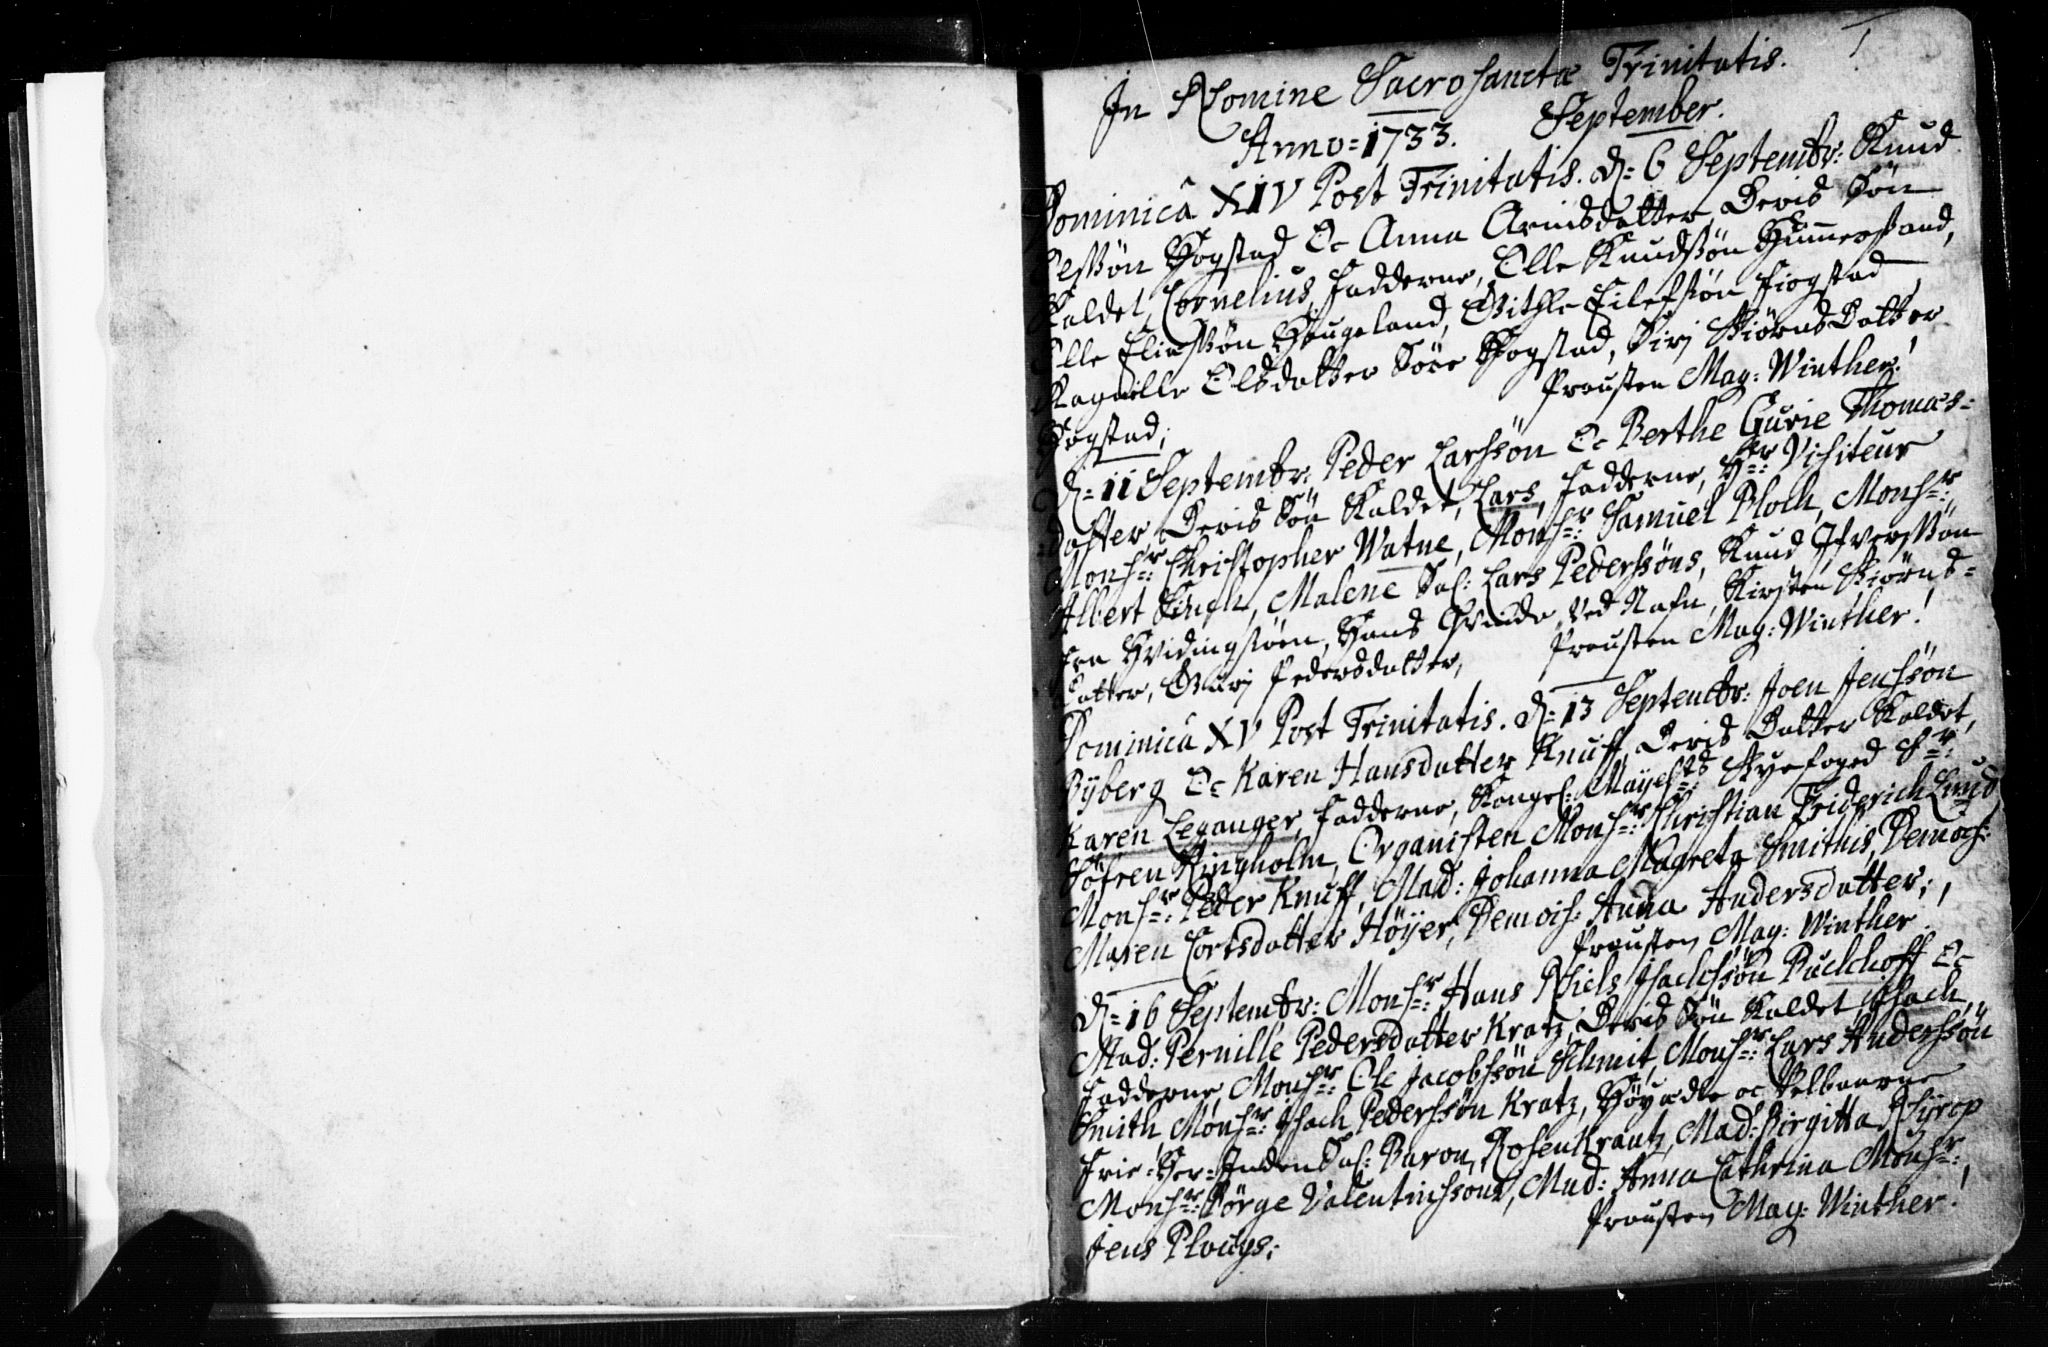 1
In Nomine Sacrosanctæ Trinitatis.
Anno=1733. September.
Dominicâ XIV Post Trinitatis. d=6 Septembr: Knud
Hogstad Oc Anna Arnisdatter, Deris Søn
Kaldet, Cornelius, Fadderne, Olle Knudsøn Hummersand,
Olle Eliessøn Haugeland, Githle Eilefsøn Fiogstad
Ragnille Olsdatter Søre Hogstad, Siri Biørns Datter
Hogstad; Prousten Mag: Winther!
d=11 Septembr: Peder Larssøn Oc Berthe Gurie Thomæs=
=datter, Deris Søn Kaldet, Lars, Fadderne, Hr: Visiteur
Monsr: Christopher Watne, Monsr: Samuel Bloch, Monsr:
Albert Singh, Malene Sal: Lars Pederssøns, Knud Ifverssøn
fra Hvidingsøen, Hans Qvinde ved Nafn, Kirsten Biørns=
Datter, Guri Pedersdatter, Prousten Mag: Winther!
Dominicâ XV Post Trinitatis. d=13 Septembr: Joen Jenssøn
Byberg Oc Karen Hansdatter Knuff, Deris Datter Kaldet,
Karen Leganger, Fadderne, Kongel: Mayests: Byefoged Sr:
Søfren Ringholm, Organisten Monsr: Christian Friderich Lund,
Monsr: Peder Knuff, Mad: Johanna Magreta Smithis, Demois:
Maren Cortsdatter Høyer, Demois: Anna Andersdatter;,
Prousten Mag: Winther.
d=16 Septembr: Monsr: Hans Niels Isachssøn Buckhoff Oc
Mad: Pernille Pedersdatter Kratz, Deris Søn Kaldet, Isach,
Fadderne, Monsr: Ole Jacobssøn Schmit, Monsr: Lars Anderssøn
Smith, Monsr: Isach Pederssøn Kratz, Høyædle oc Velbaarne
Frie=Her=Inden Sal: Baron Rosenkrantz, Mad: Birgitta Nyrop
Monsr: Børge Valentinssons, Mad: Anna Cathrina Monsr:
Jens Plougs; Prousten Mag: Winther!